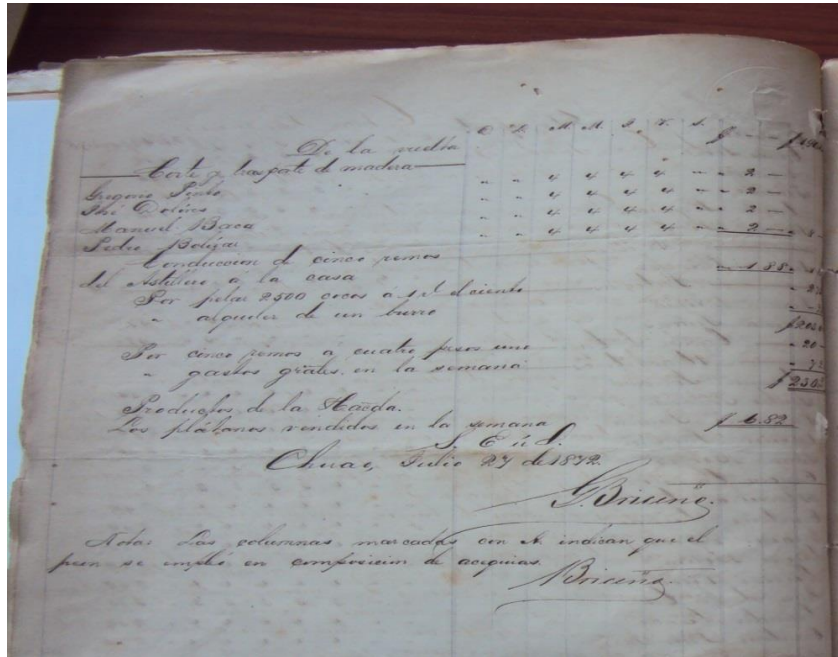 De la vuelta
Corte y trasporte de madera
Gregorio Pinto " " 4 4 4 4 " - 2 -
José Dolores " " 4 4 4 4 " - 2 -
Manuel Baca " " 4 4 4 4 " - 2 -
Pedro Bolívar " " 4 4 4 4 " - 2 -
Conduccion de cinco remos
del Astillero á la casa
Por pelar 2500 cocos á el ciento
" alquiler de un burro
Por cinco remos á cuatro pesos uno
" gastos grátes. en la semana
Productos de la Hacda.
Los plátanos vendidos en la semana $ 6.82
S. E. ú O.
Chuao, Julio 27 de 1872.
G. Briceño.
Nota: Las columnas marcadas con A indican que el
peon se empleó en composicion de acequias.
Briceño.